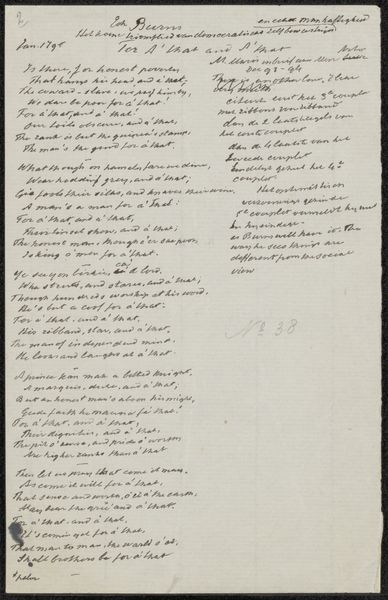 2
Burns
en echte manhaftigheid
Het hoewe triomf v. d. democratie in zelfbewustzijn
Jan. 1795
For A' that and A' that
Is there, for honest poverty
That hangs his head, and a' that;
The coward-slave, we pass him by,
We dare be poor for a' that!
For a' that, and a' that,
Our toils obscure, and a' that,
The rank is but the guinea's stamp,
The man's the gowd for a' that.
What though on hamely fare we dine,
Wear hoddin grey, and a' that;
Gie fools their silks, and knaves their wine,
A man's a man for a' that:
For a' that, and a' that,
Their tinsel show, and a' that;
The honest man, though e'er sae poor,
Is king o' men for a' that.
Ye see yon birkie, ca'd a lord,
Wha struts, and stares, and a' that;
Though hundreds worship at his word,
He's but a coof for a' that:
For a' that, and a' that,
His ribband, star, and a' that,
The man of independent mind,
He looks and laughs at a' that.
A prince can mak a belted knight,
A marquis, duke, and a' that;
But an honest man's aboon his might,
Gude faith he mauna fa' that!
For a' that, and a' that,
Their dignities, and a' that,
The pith o' sense, and pride o' worth,
Are higher ranks than a' that
Then let us pray that come it may,
As come it will for a' that,
That sense and worth, o'er a' the earth,
May bear the gree, and a' that.
For a' that, and a' that,
It's coming yet for a' that,
That man to man, the world o'er,
Shall brothers be for a' that
There is another law, I hear
eerst het 3e couplet
dan de 4 laatste van het
tweede couplet
eindelijk geheel het 4e
couplet
5e couplet
as Burns will have it. The
way he sees things are
different from the social
view
No 38